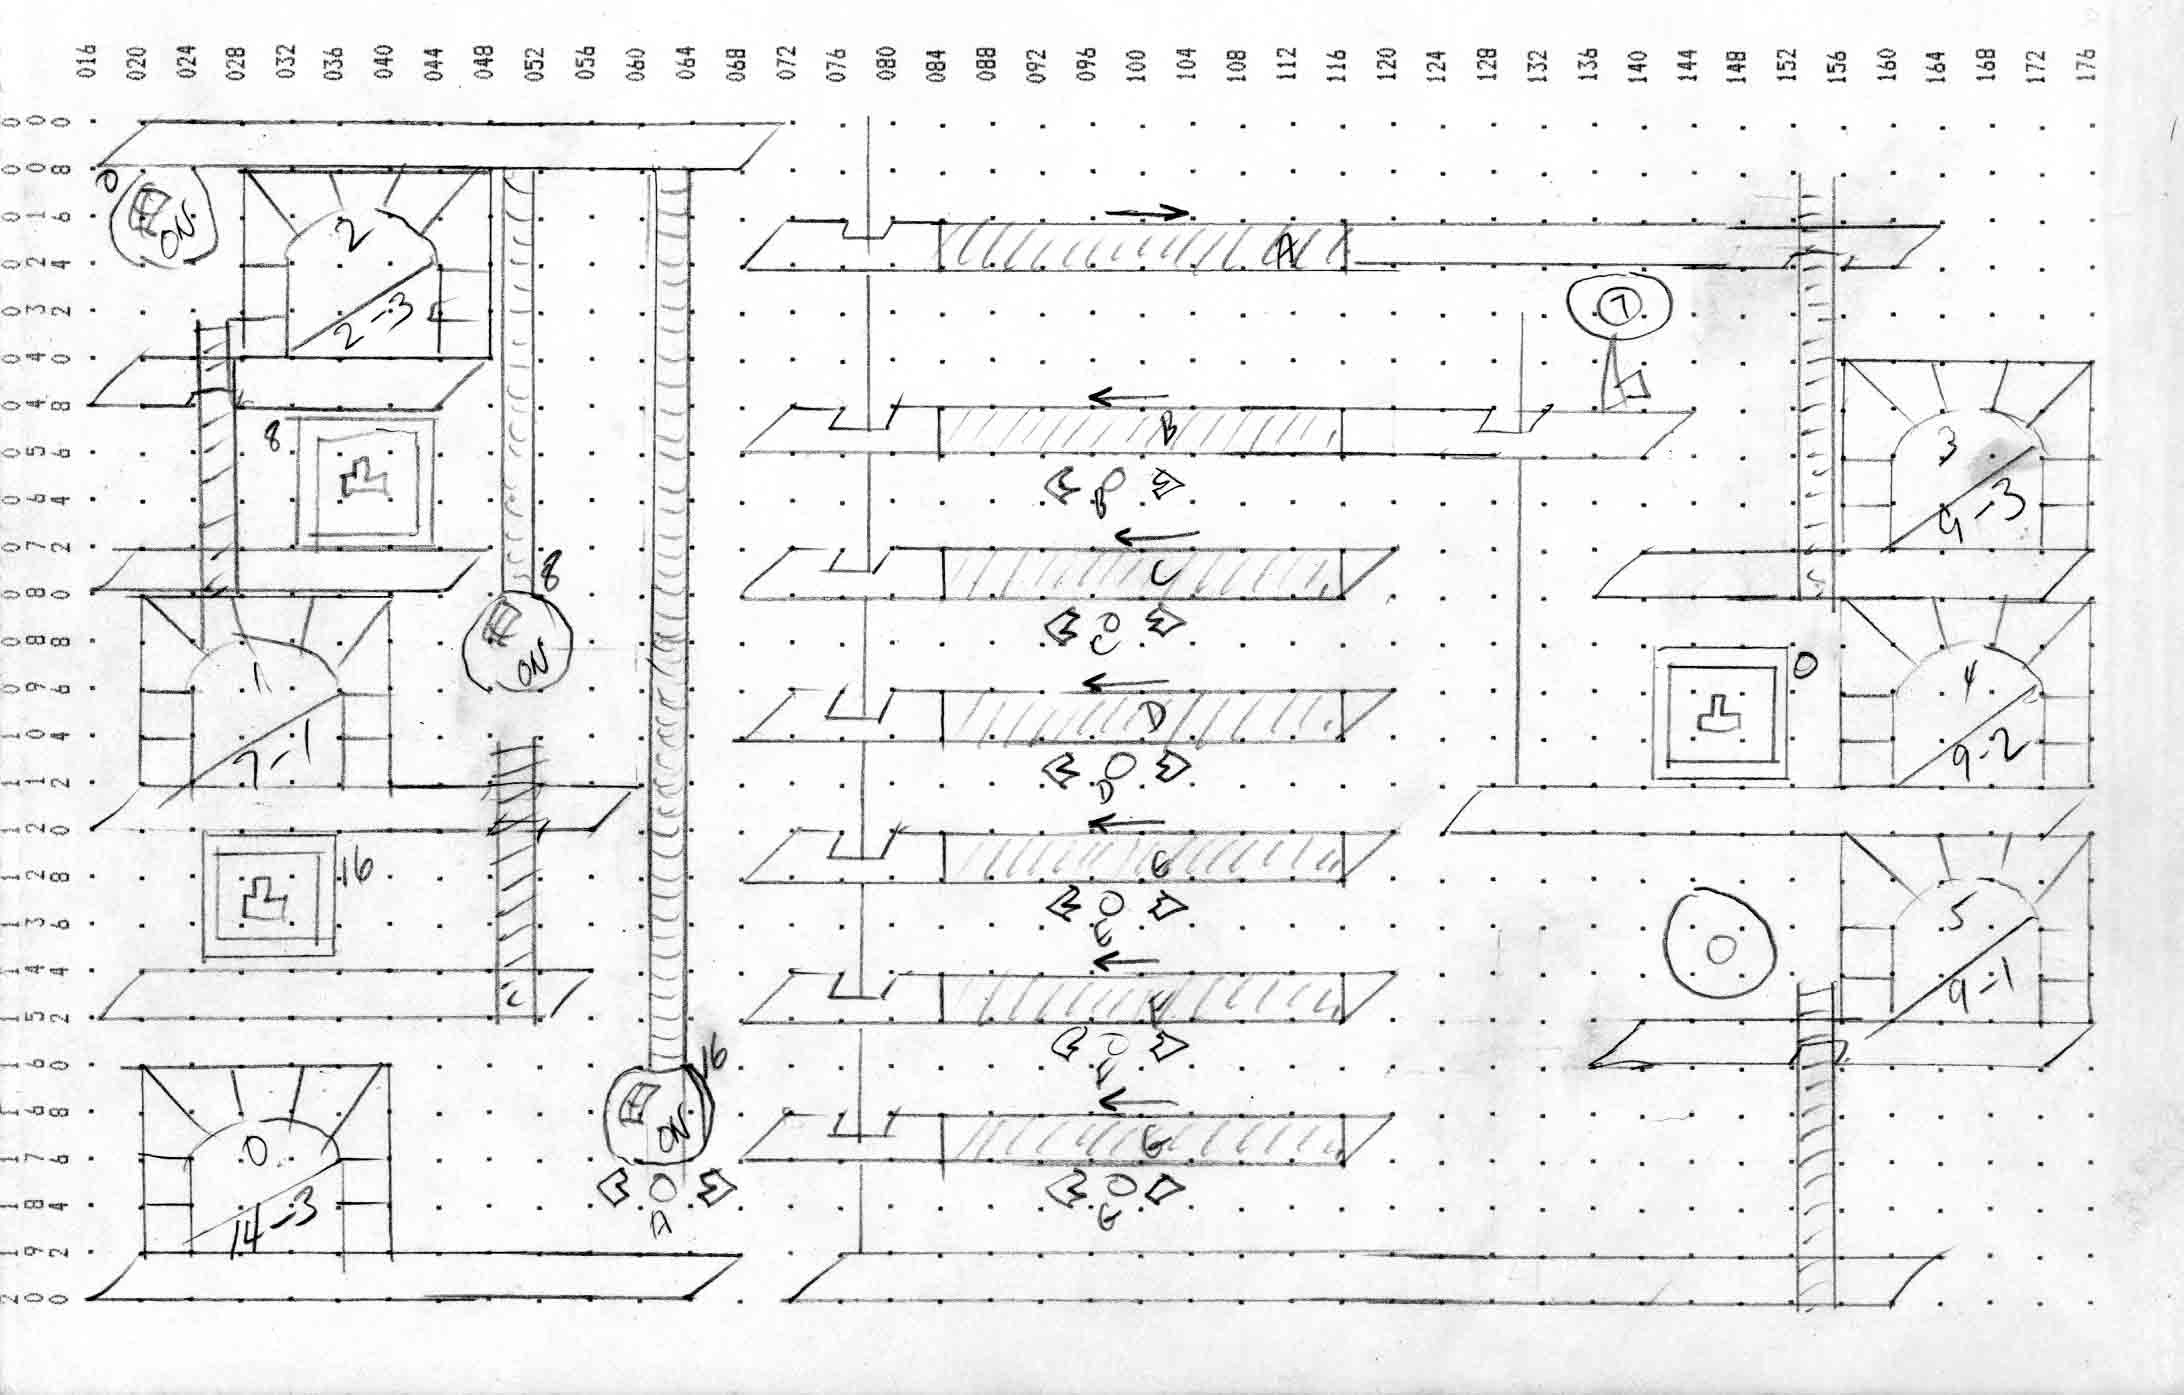 016 020 024 028 032 036 040 044 048 052 056 060 064 068 072 076 080 084 088 092 096 100 104 108 112 116 120 124 128 132 136 140 144 148 152 156 160 164 168 172 176
000
008
016
024
032
040
048
056
064
072
080
088
096
104
112
120
128
136
144
152
160
168
176
184
192
200
0
ON
2
2-3
A
7
B
8
3
9-3
B
C
8
C
ON
1
7-1
D
D
0
4
9-2
16
E
E
5
9-1
F
F
0
14-3
16
ON
A
G
G